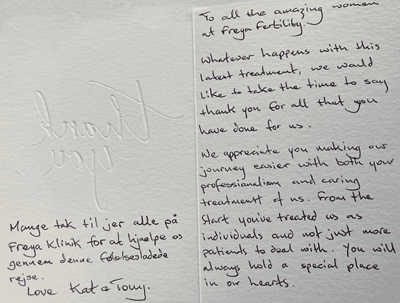 thank
you
Mange tak til jer alle på
Freya Klinik for at hjælpe os
gennem denne følelsesladede
rejse.
Love Kat & Tony.
To all the amazing women
at Freya Fertility.
Whatever happens with this
latest treatment, we would
like to take the time to say
thank you for all that you
have done for us.
We appreciate you making our
journey easier with both your
professionalism and caring
treatment of us. From the
start you've treated us as
individuals and not just more
patients to deal with. You will
always hold a special place
in our hearts.